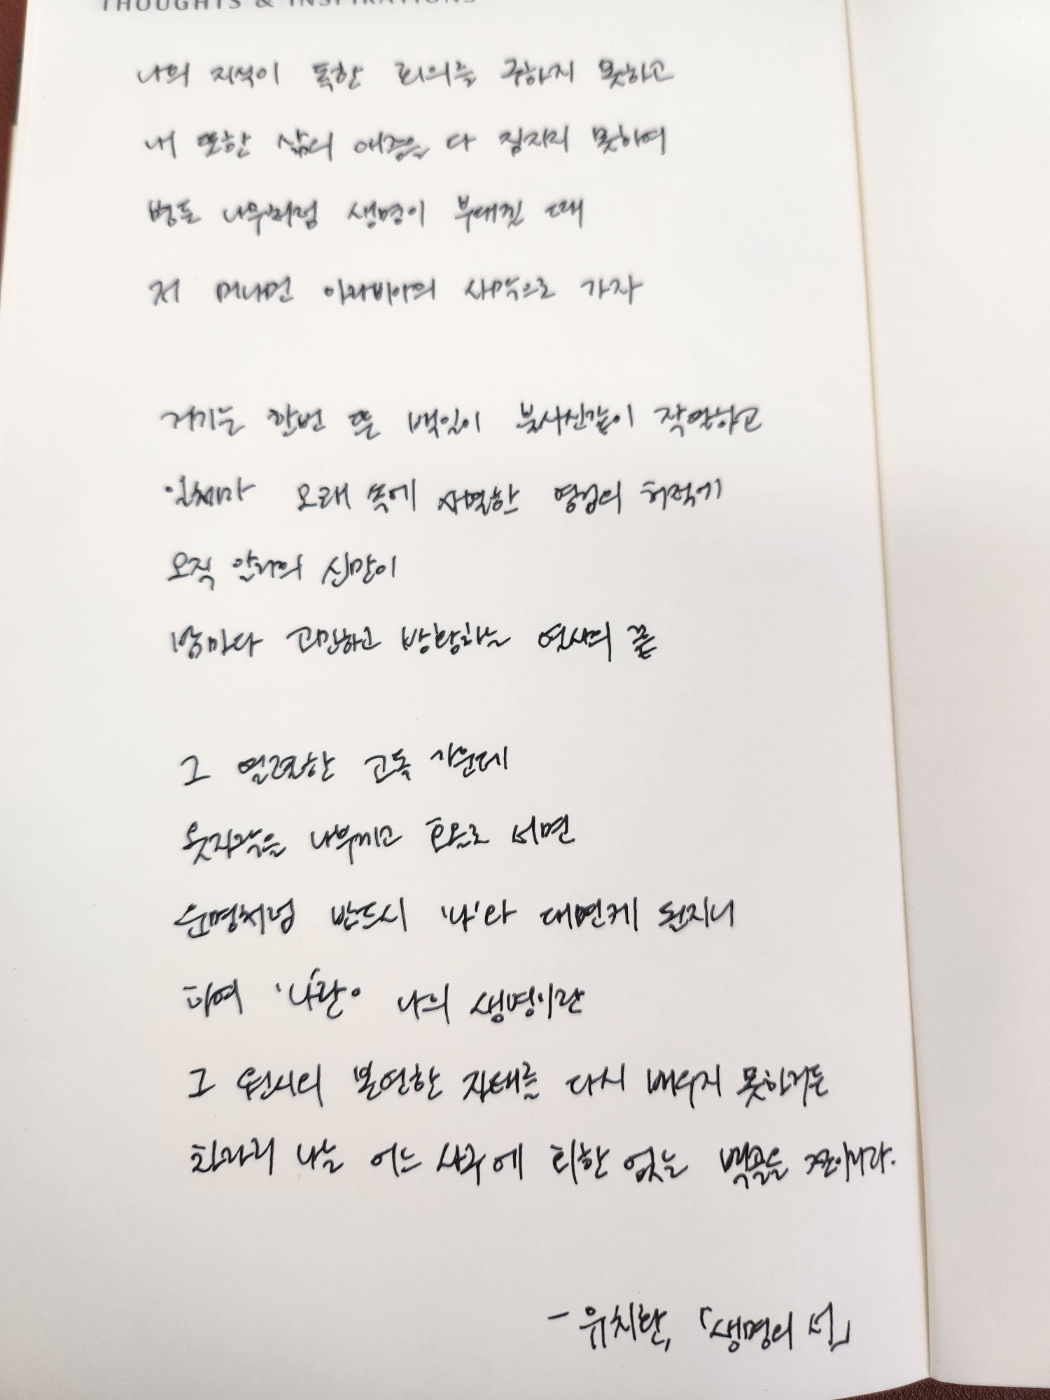 THOUGHTS & INSPIRATIONS
나의 지식이 독한 회의를 구하지 못하고
내 또한 삶의 애증을 다 짐지지 못하여
병든 나무처럼 생명이 부대낄 때
저 머나먼 아라비아의 사막으로 가자
거기는 한번 뜬 백일이 불사신같이 작열하고
일체가 모래 속에 사멸한 영겁의 허적에
오직 알라의 신만이
밤마다 고민하고 방황하는 열사의 끝
그 열렬한 고독 가운데
옷자락을 나부끼고 호올로 서면
운명처럼 반드시 '나'와 대면케 될지니
하여 '나'란 나의 생명이란
그 원시의 본연한 자태를 다시 배우지 못하거든
차라리 나는 어느 사구에 회한 없는 백골을 쪼이리라.
- 유치환, 「생명의 서」